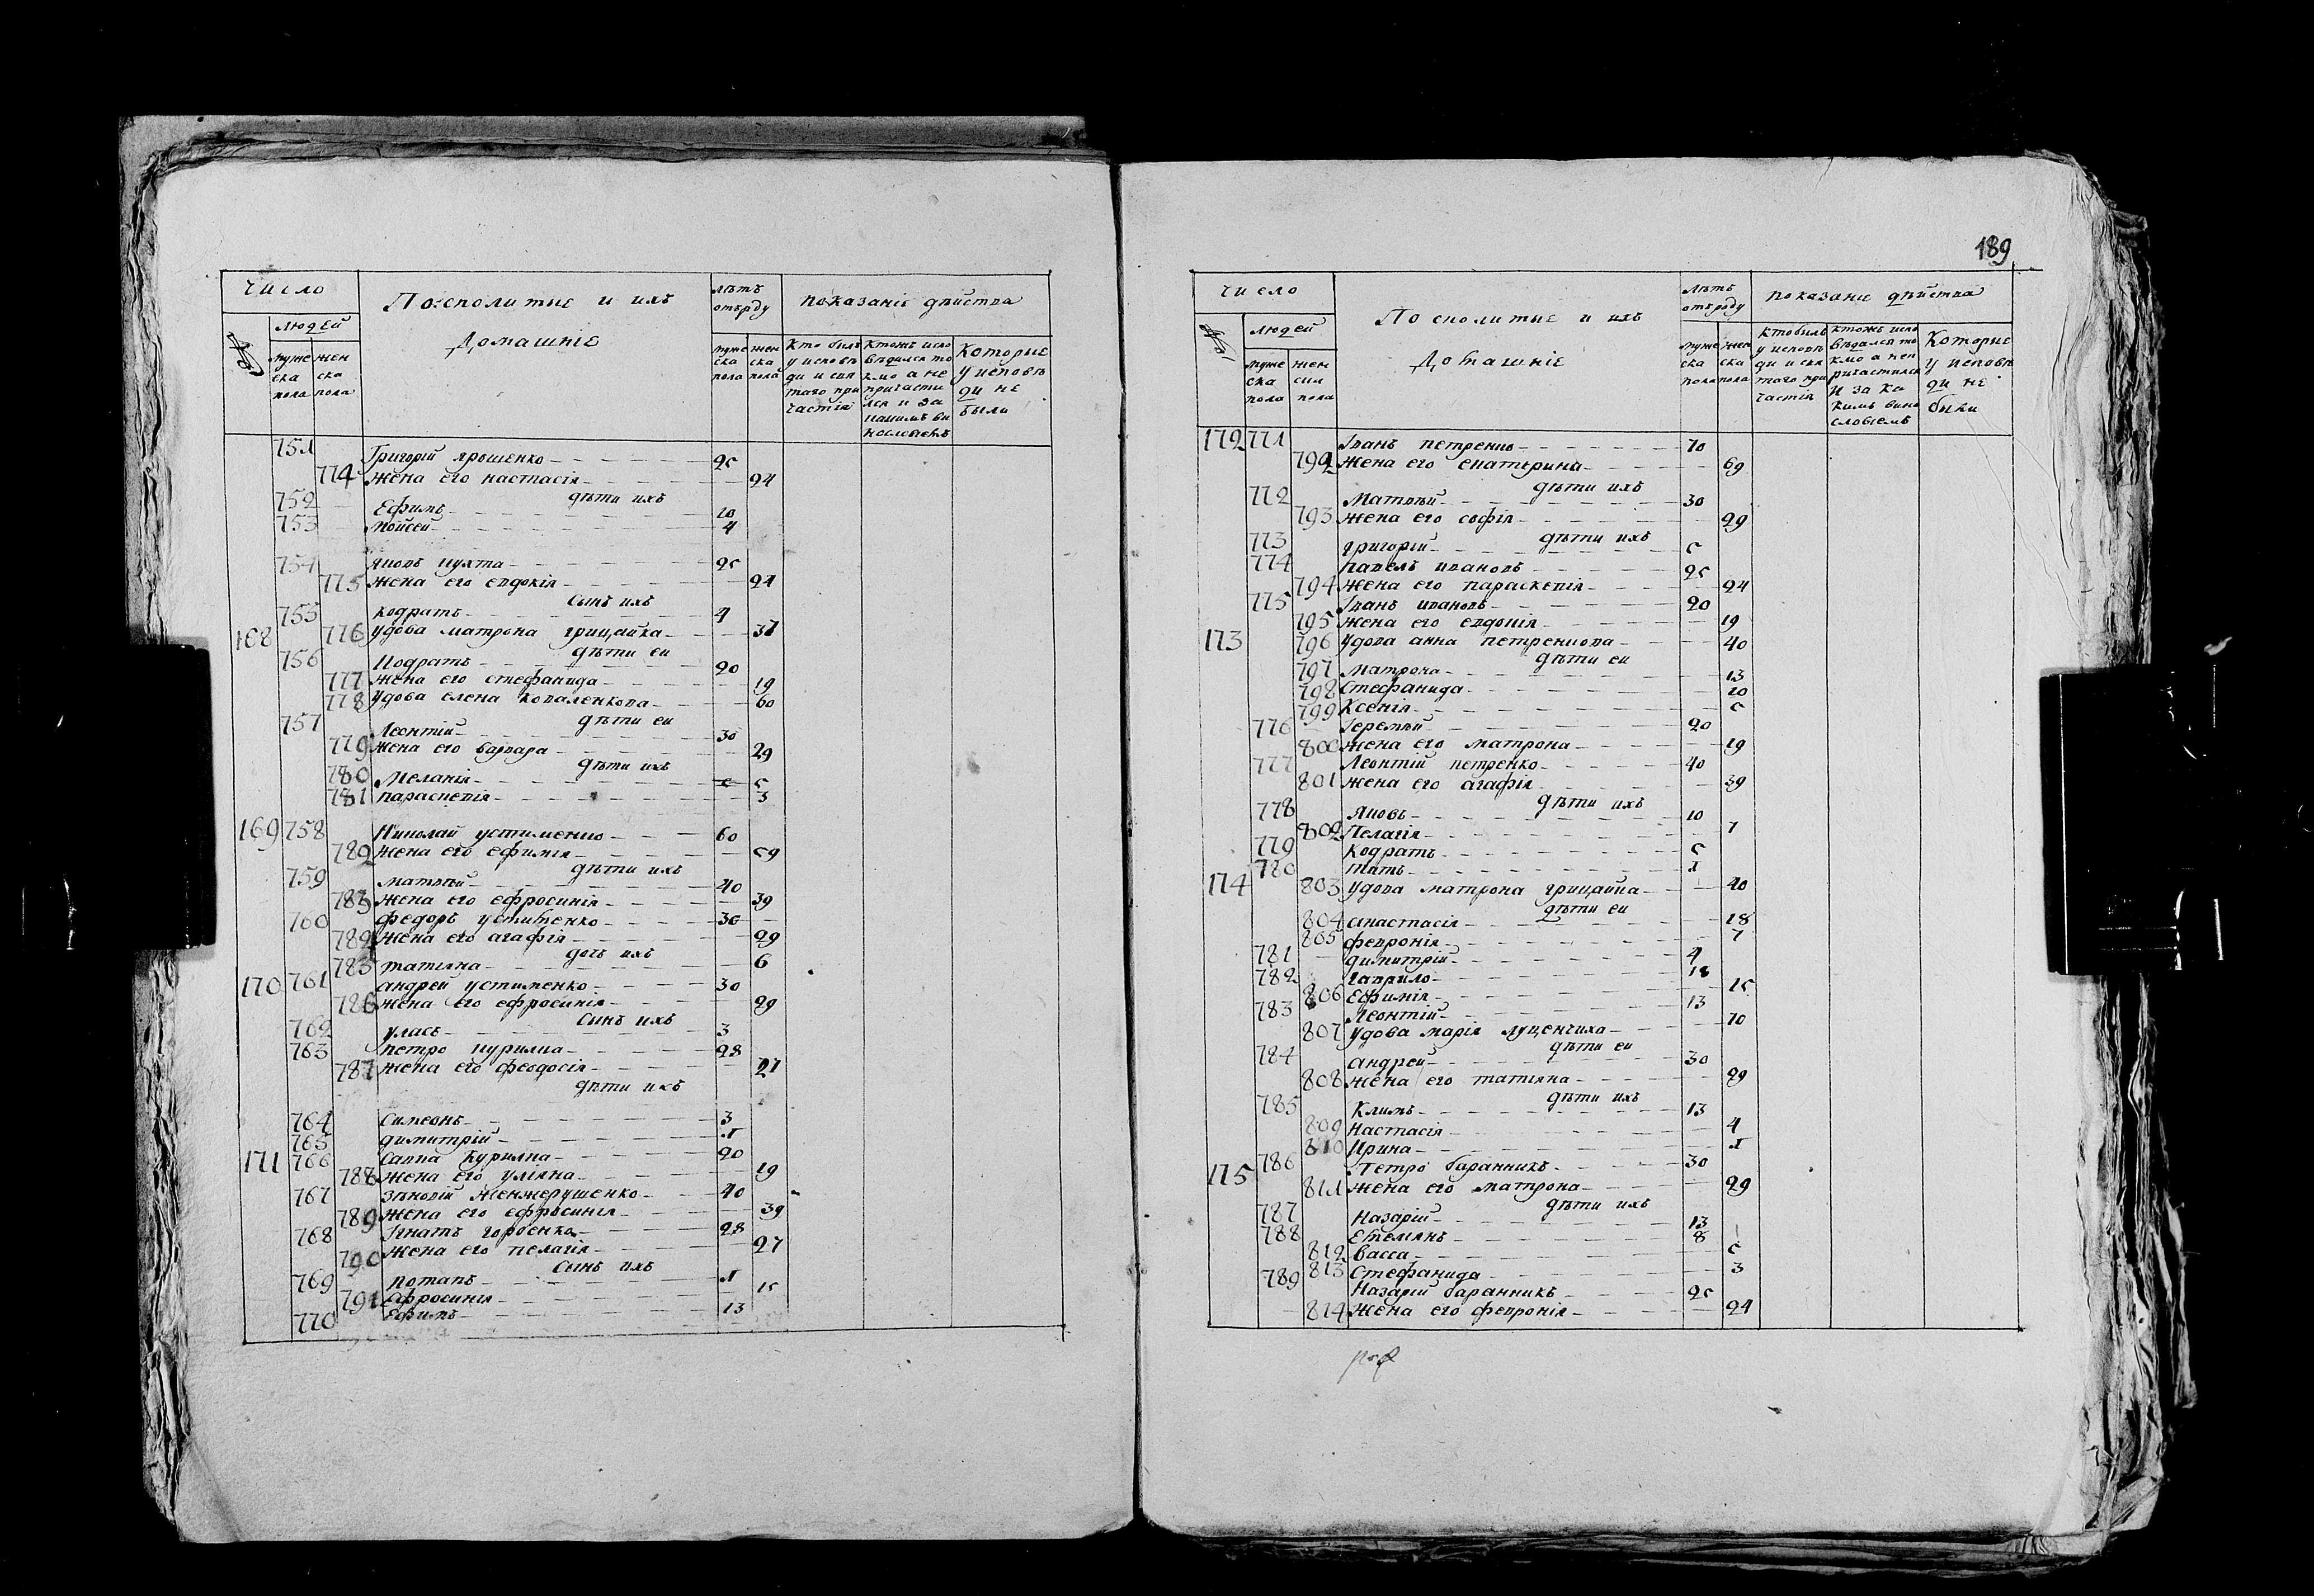 Число
Посполитые и ихъ
Домашніе
лѣтъ
отъроду
показаніе дѣйства
людей
муже
ска
пола
жен
ска
пола
муже
ска
пола
жен
ска
пола
Кто былъ
у исповѣ
ди и свя
таго при
частія
Ктожъ испо
вѣдался то
кмо а не
причасти
лся и за
Которые
у исповѣ
ди не
были
751 Григорій ярошенко 25
774 Жена его настасія 24
дѣти ихъ
752 Ефимъ 10
753 Мойсей 4
754 яковъ пухта 25
775 Жена его евдокія 24
Сынъ ихъ
755 кодратъ 4
168 776 удова матрона грицаиха 37
дѣти еи
756 Кодратъ 20
777 Жена его стефанида 19
778 Удова елена коваленкова 60
дѣти еи
757 Леонтій 30
779 Жена его варвара 29
дѣти ихъ
780 Меланія 5
781 параскевія 3
169 758 Николай устименко 60
782 Жена его ефимія 59
дѣти ихъ
759 матвѣй 40
783 Жена его ефросинія 39
760 федоръ устименко 30
784 Жена его агафія 29
дочъ ихъ
785 татіяна 6
170 761 андрей устименко 30
786 Жена его ефросинія 29
Сынъ ихъ
762 уласъ 3
763 петро курилка 28
787 Жена его феодосія 27
дѣти ихъ
764 Симеонъ 3
765 димитрій 1
171 766 Савва Курилка 20
788 Жена его уліяна 19
767 зѣновій Женжерушенко 40
789 Жена его ефросинія 39
768 Ігнатъ горбенко 28
790 Жена его пелагія 27
Сынъ ихъ
769 потапъ 1
791 Ефросинія 15
770 Ефимъ 13
189
Число
Посполитые и ихъ
Домашніе
лѣтъ
отъроду
показаніе дѣйства
людей
муже
ска
пола
жен
ска
пола
муже
ска
пола
жен
ска
пола
Кто былъ
у исповѣ
ди и свя
таго при
частія
Ктожъ испо
вѣдался то
кмо а неп
ричастился
и за ка
кимъ вино
словіемъ
Которые
у исповѣ
ди не
были
172 771 Іванъ петренко 70
792 Жена его екатерина 69
дѣти ихъ
772 Матвѣй 30
793 Жена его софія 29
дѣти ихъ
773 григорій 5
774 павелъ ивановъ 25
794 Жена его параскевія 24
775 Іванъ ивановъ 20
795 Жена его евдокія 19
173 796 Удова анна петренкова 40
дѣти еи
797 Матрона 13
798 Стефанида 10
799 Ксенія 5
776 Іеремѣй 20
800 Жена его матрона 19
777 Леонтій петренко 40
801 Жена его агафія 39
дѣти ихъ
778 Яковъ 10
802 Пелагія 7
779 Кодратъ 5
780 татъ 1
174 803 Удова матрона грицаиха 40
дѣти еи
804 анастасія 18
805 февронія 7
781 димитрій 4
782 гаврило 18
806 Ефимія 15
783 Леонтій 13
807 Удова марія луценчиха 70
дѣти еи
784 андрей 30
808 Жена его татіяна 29
дѣти ихъ
785 Климъ 13
809 Настасія 4
810 Ирина 1
175 786 Петро баранникъ 30
811 Жена его матрона 29
дѣти ихъ
787 Назарій 13
788 Емелянъ 8
812 васса 5
813 Стефанида 3
789 Назарій баранникъ 25
814 Жена его февронія 24